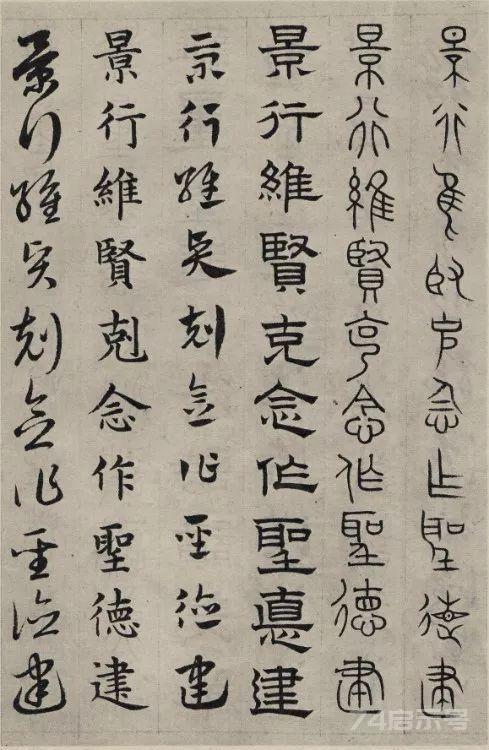 景行維賢克念作聖德建
景行維賢克念作聖德建
景行維賢克念作聖悳建
景行維賢剋念作聖德建
景行維賢剋念作聖德建
景行維賢剋念作聖德建
74启示号